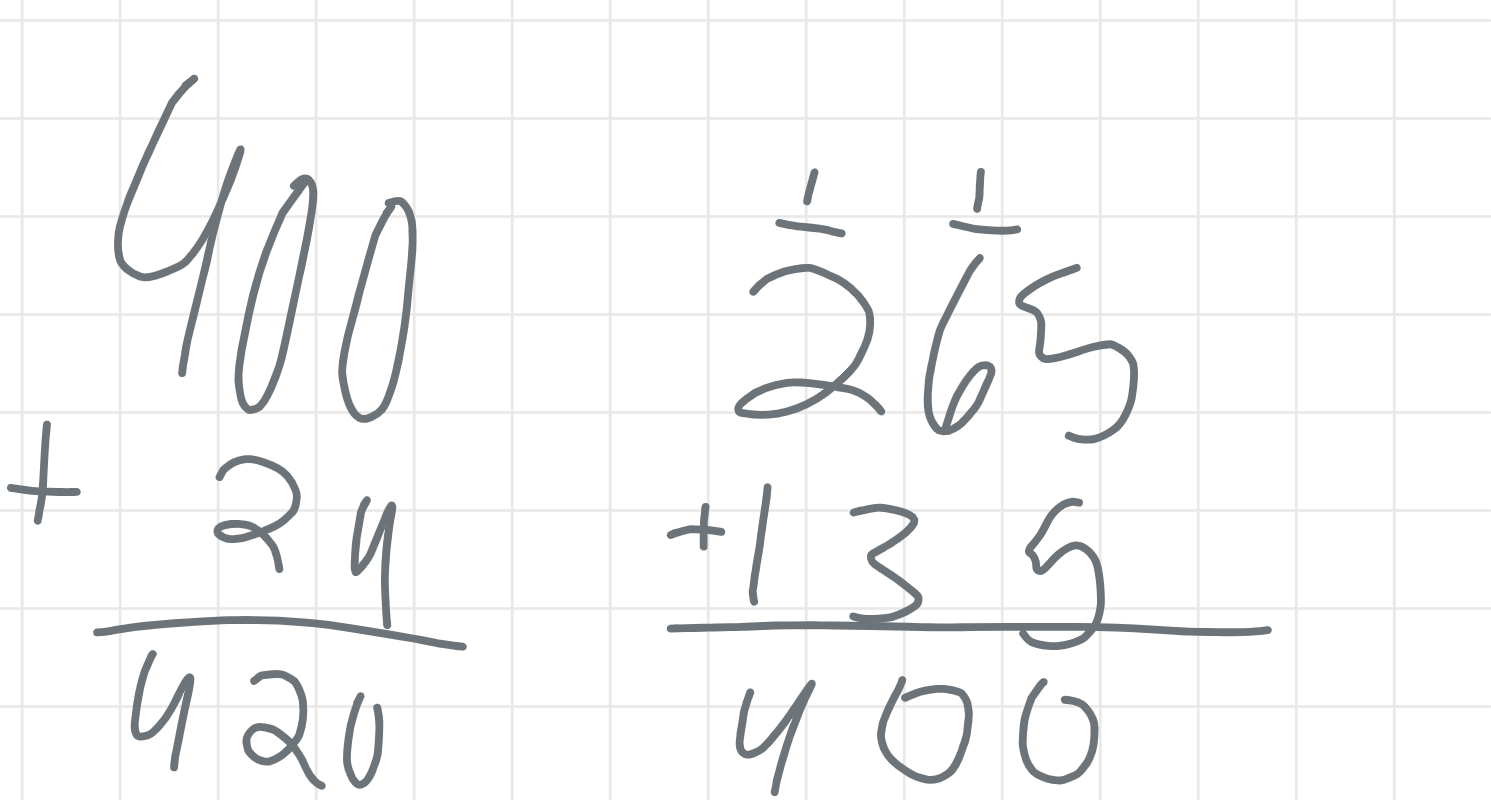 400
+ 24
420
1 1
265
+135
400